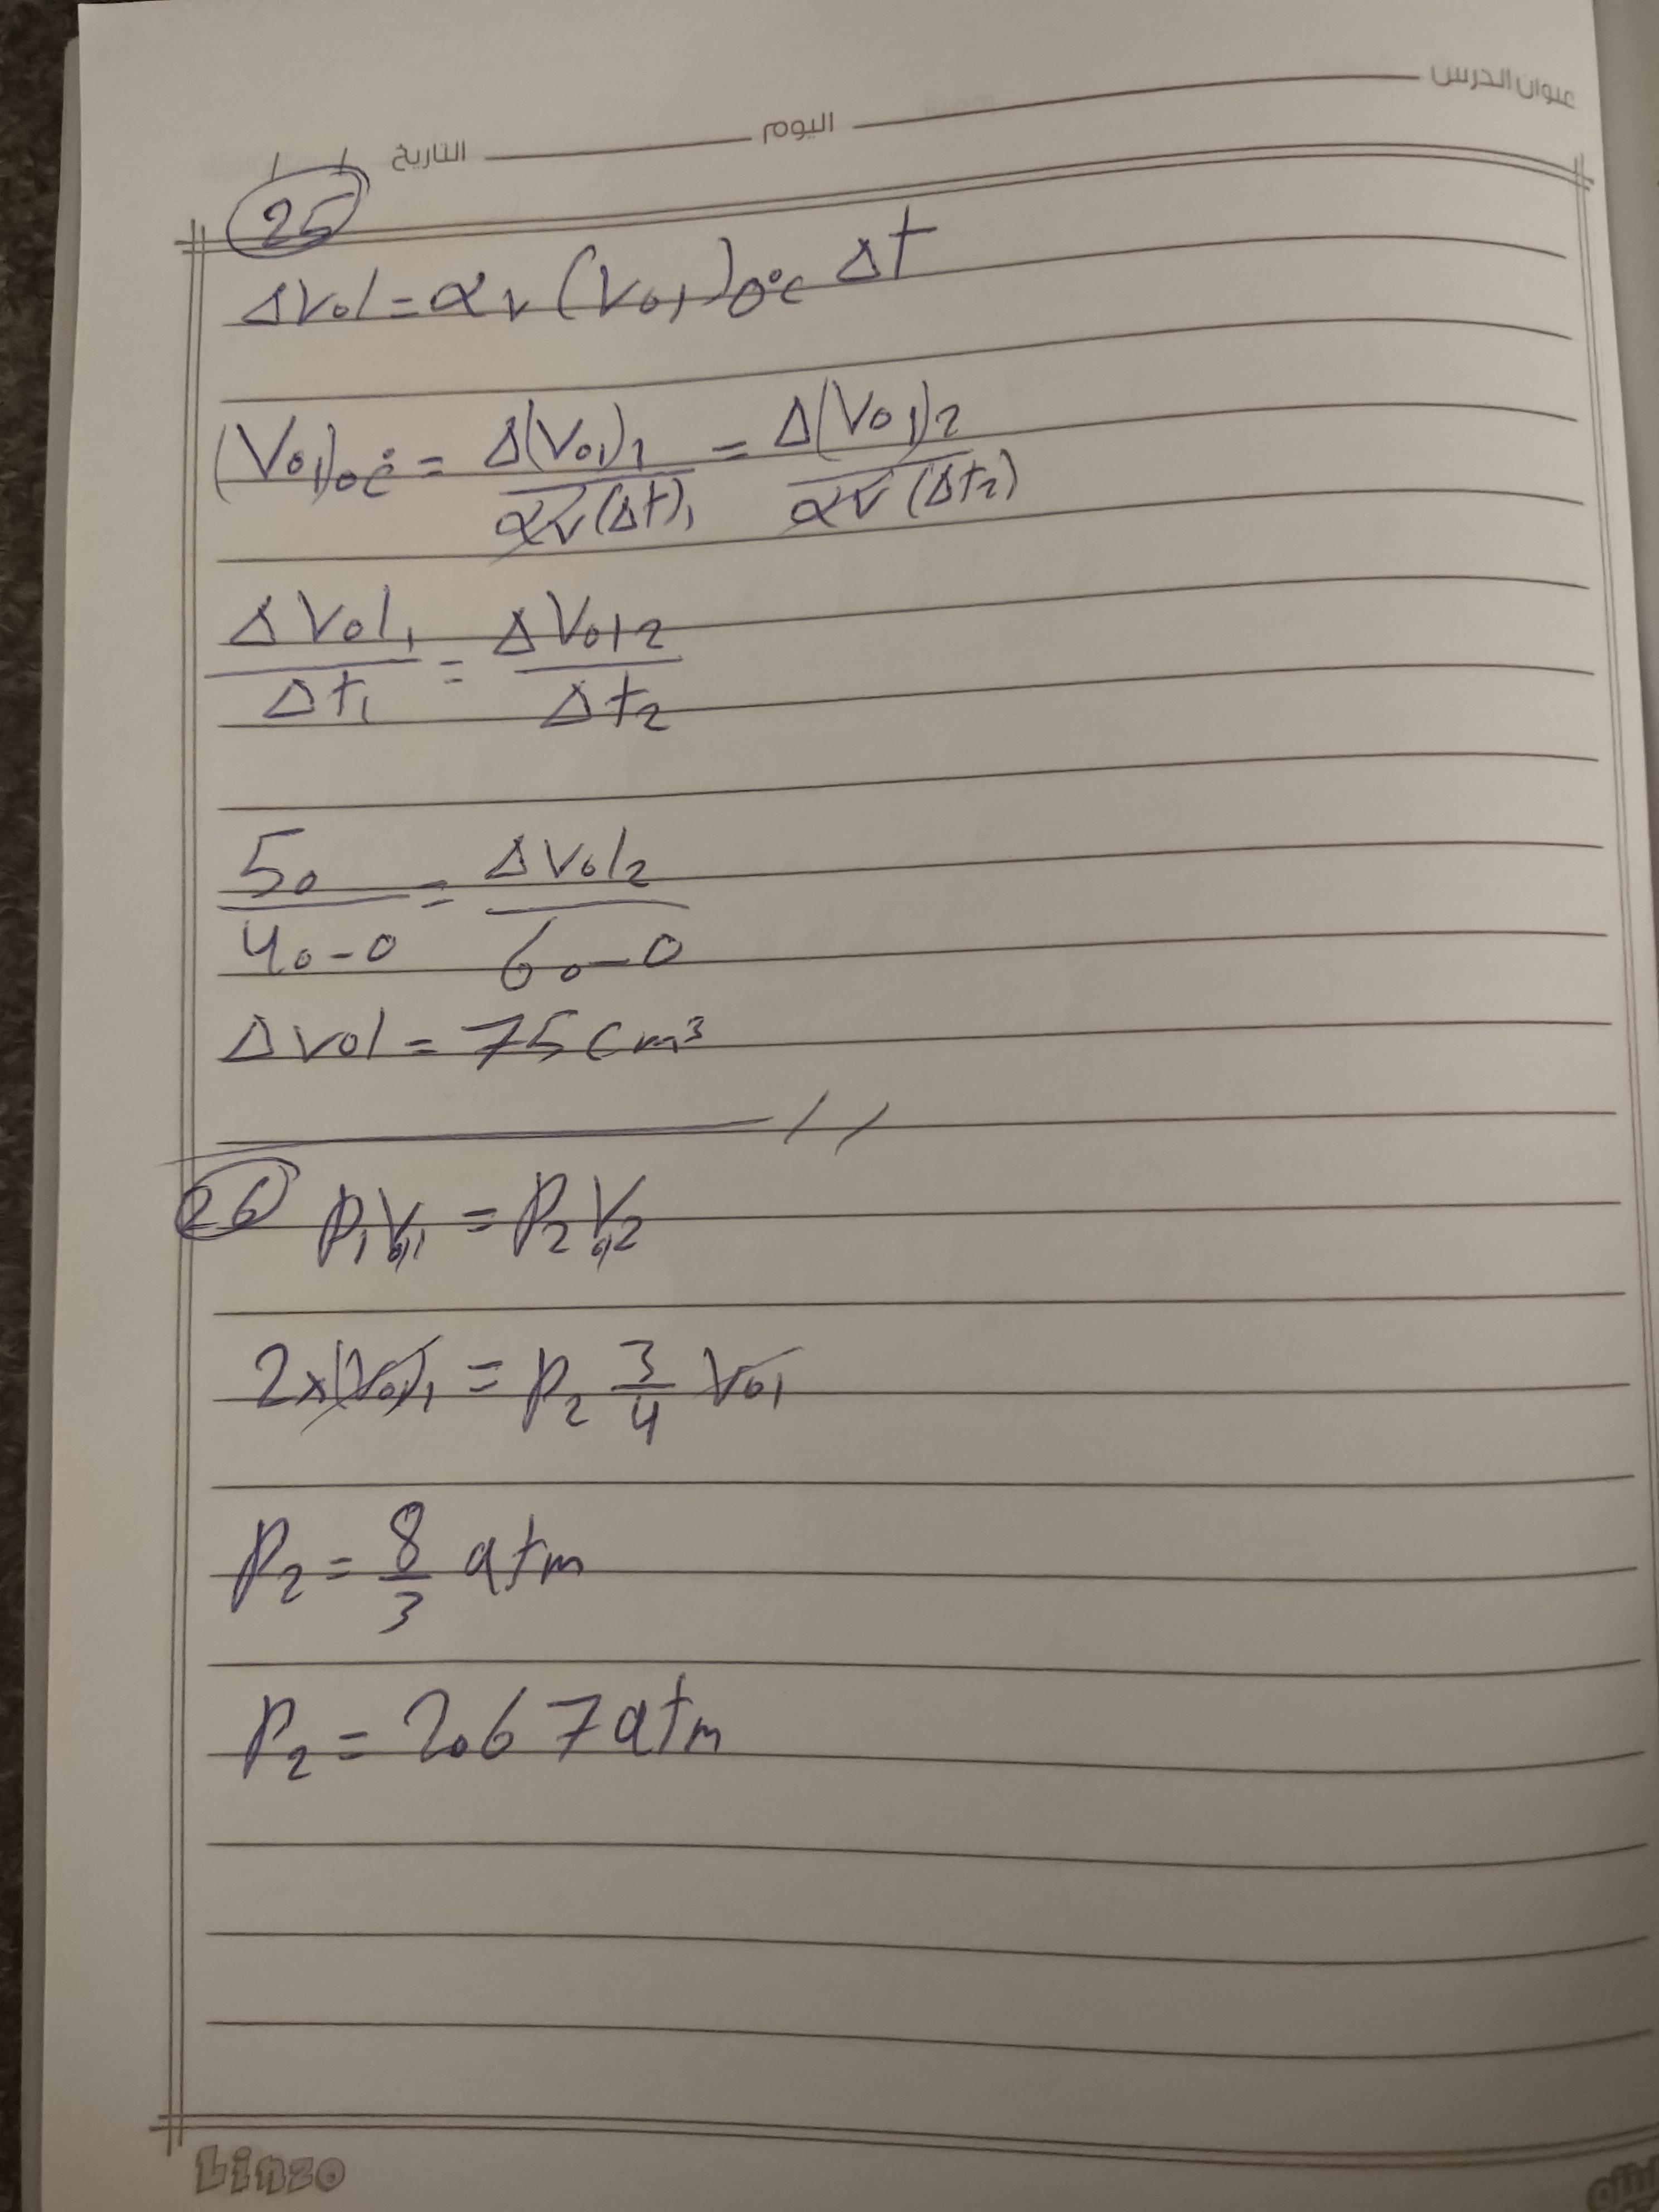 عنوان الدرس ـــــ اليوم ـــــ التاريخ / /
25
ΔVol = αv (Vol)0°C Δt
(Vol)0°C = Δ(Vol)1 / αv(Δt)1 = Δ(Vol)2 / αv(Δt2)
ΔVol1 / Δt1 = ΔVol2 / Δt2
50 / 40-0 = ΔVol2 / 60-0
ΔVol = 75 cm³
26 P1Vol1 = P2Vol2
2×(Vol)1 = P2 3/4 Vol
P2 = 8/3 atm
P2 = 2.67 atm
Linzo